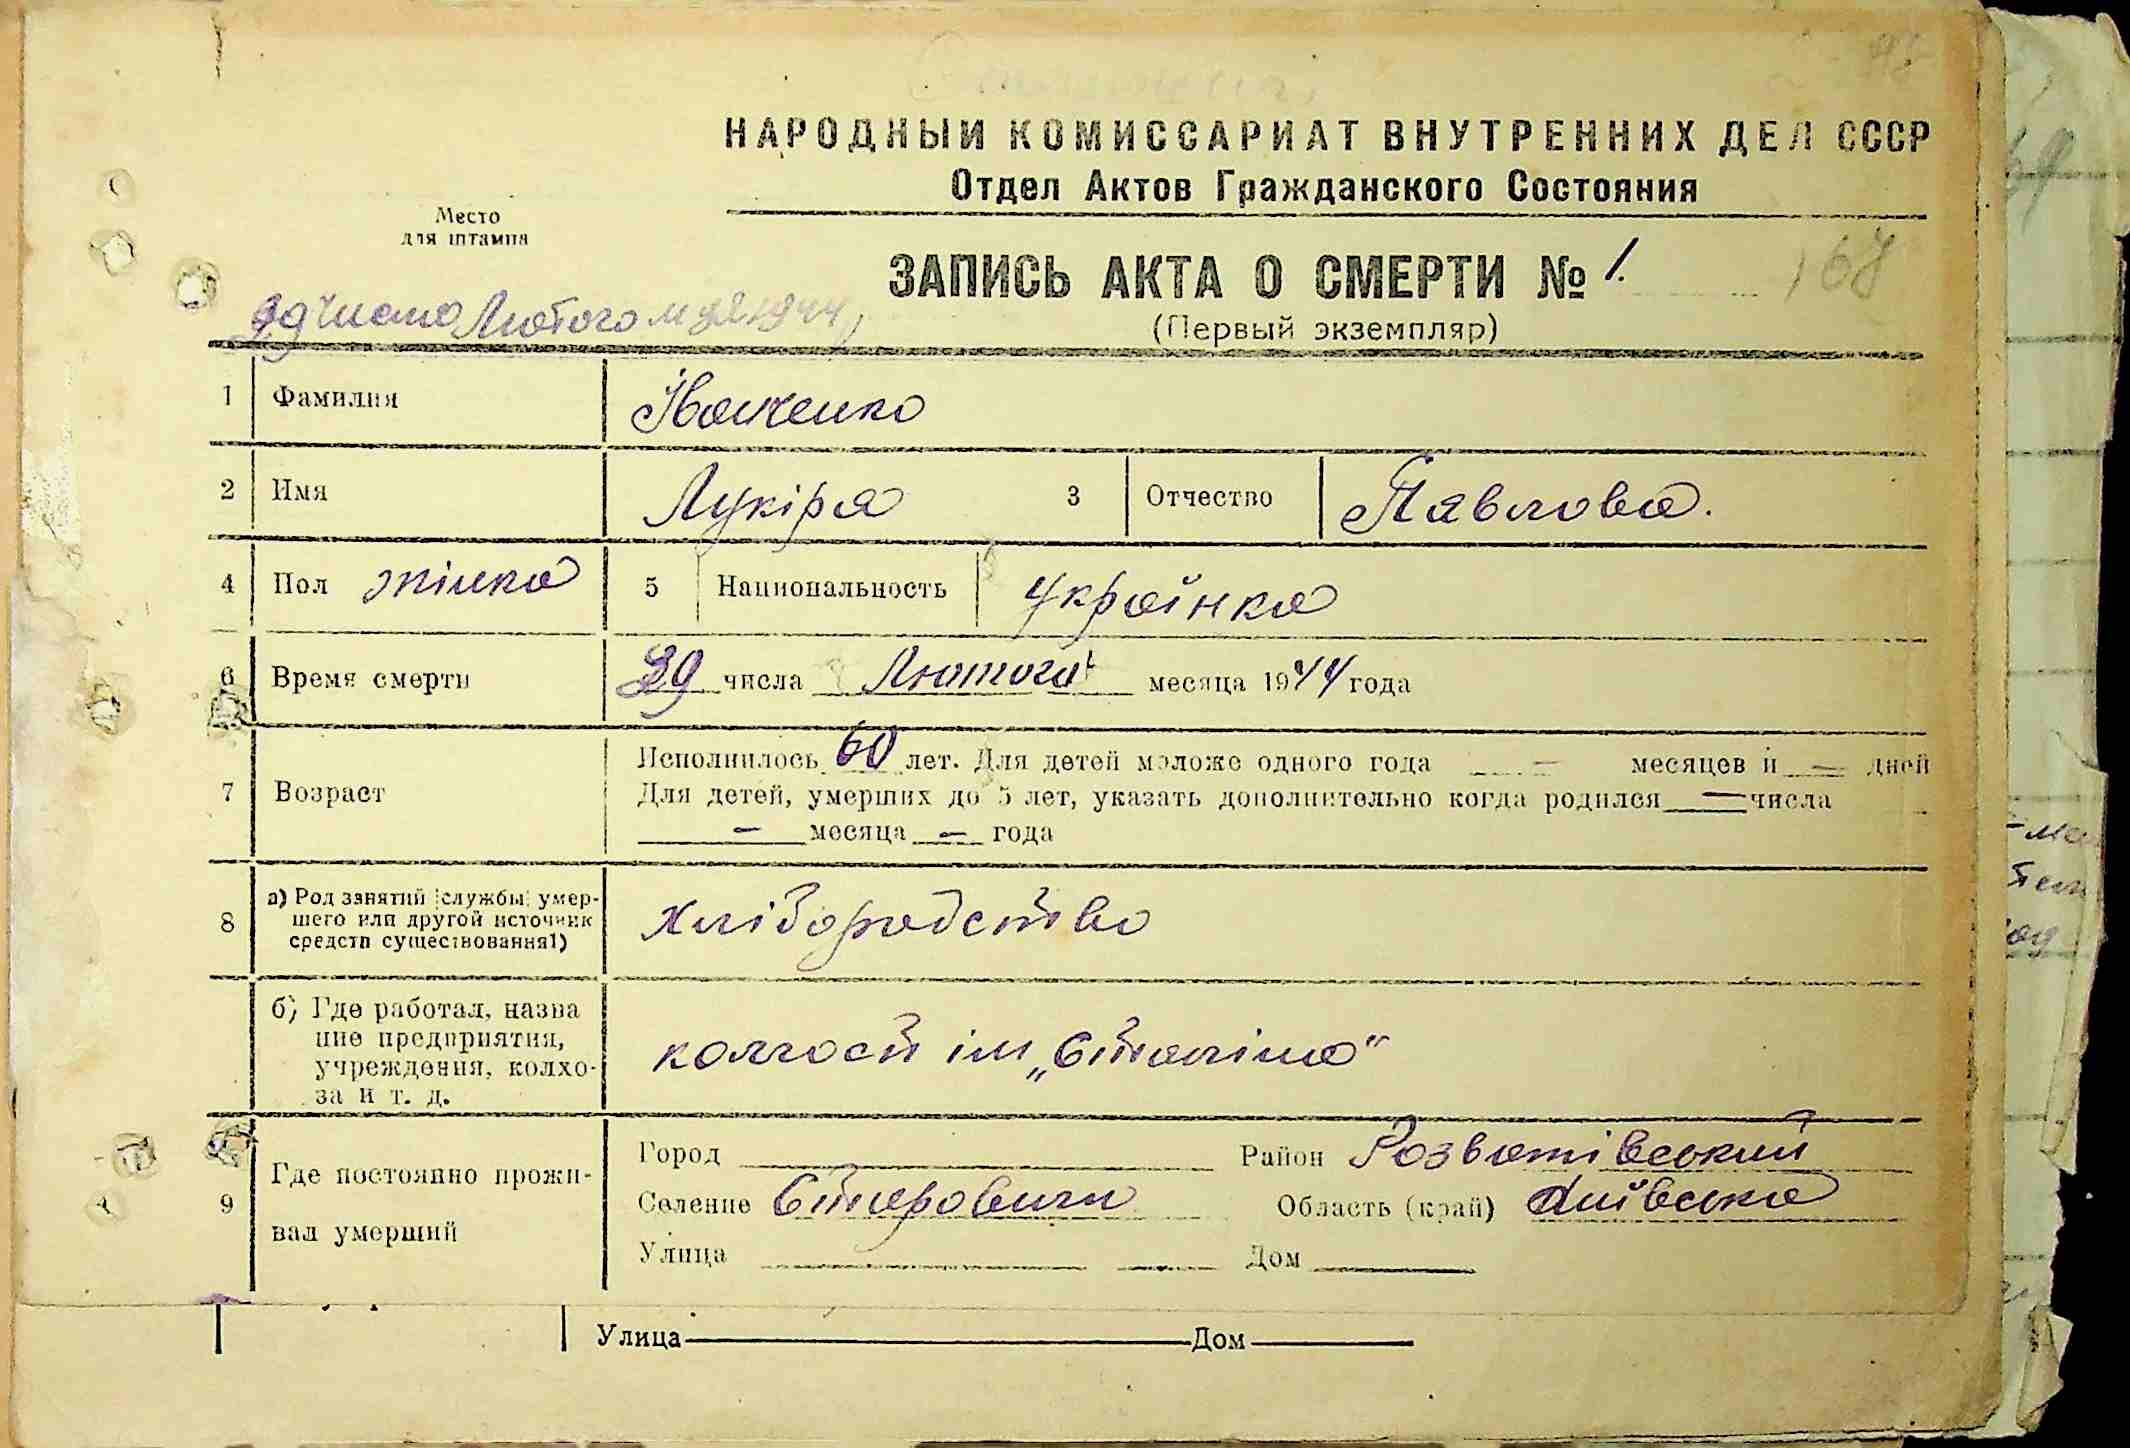 НАРОДНЫЙ КОМИССАРИАТ ВНУТРЕННИХ ДЕЛ СССР
Отдел Актов Гражданского Состояния
Место
для штампа
ЗАПИСЬ АКТА О СМЕРТИ № 1. 168
29 числа Лютого м-ця 1944
(Первый экземпляр)
1 Фамилия Іванченко
2 Имя Лукіра 3 Отчество Павлова.
4 Пол жінка 5 Национальность Українка
6 Время смерти 29 числа Лютого месяца 1944 года
7 Возраст Исполнилось 60 лет. Для детей моложе одного года — месяцев и — дней
Для детей, умерших до 5 лет, указать дополнительно когда родился — числа
— месяца — года
8 а) Род занятий (службы) умер-
шего или другой источник
средств существования1) хліборобство
б) Где работал, назва
ние предприятия,
учреждения, колхо-
за и т. д. колгосп ім „Сталіна"
9 Где постоянно прожи-
вал умерший
Город Район Розважівський
Селение Старовичи Область (край) Київська
Улица Дом
Улица Дом